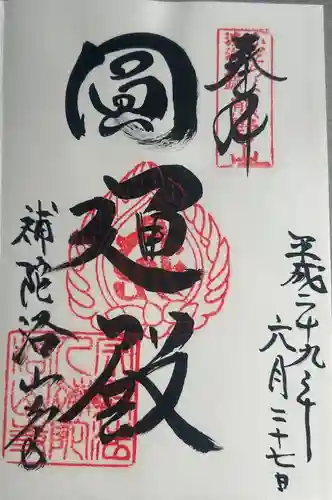 奉拝
圓通殿
補陀洛山寺
平成二十九年
六月二十七日